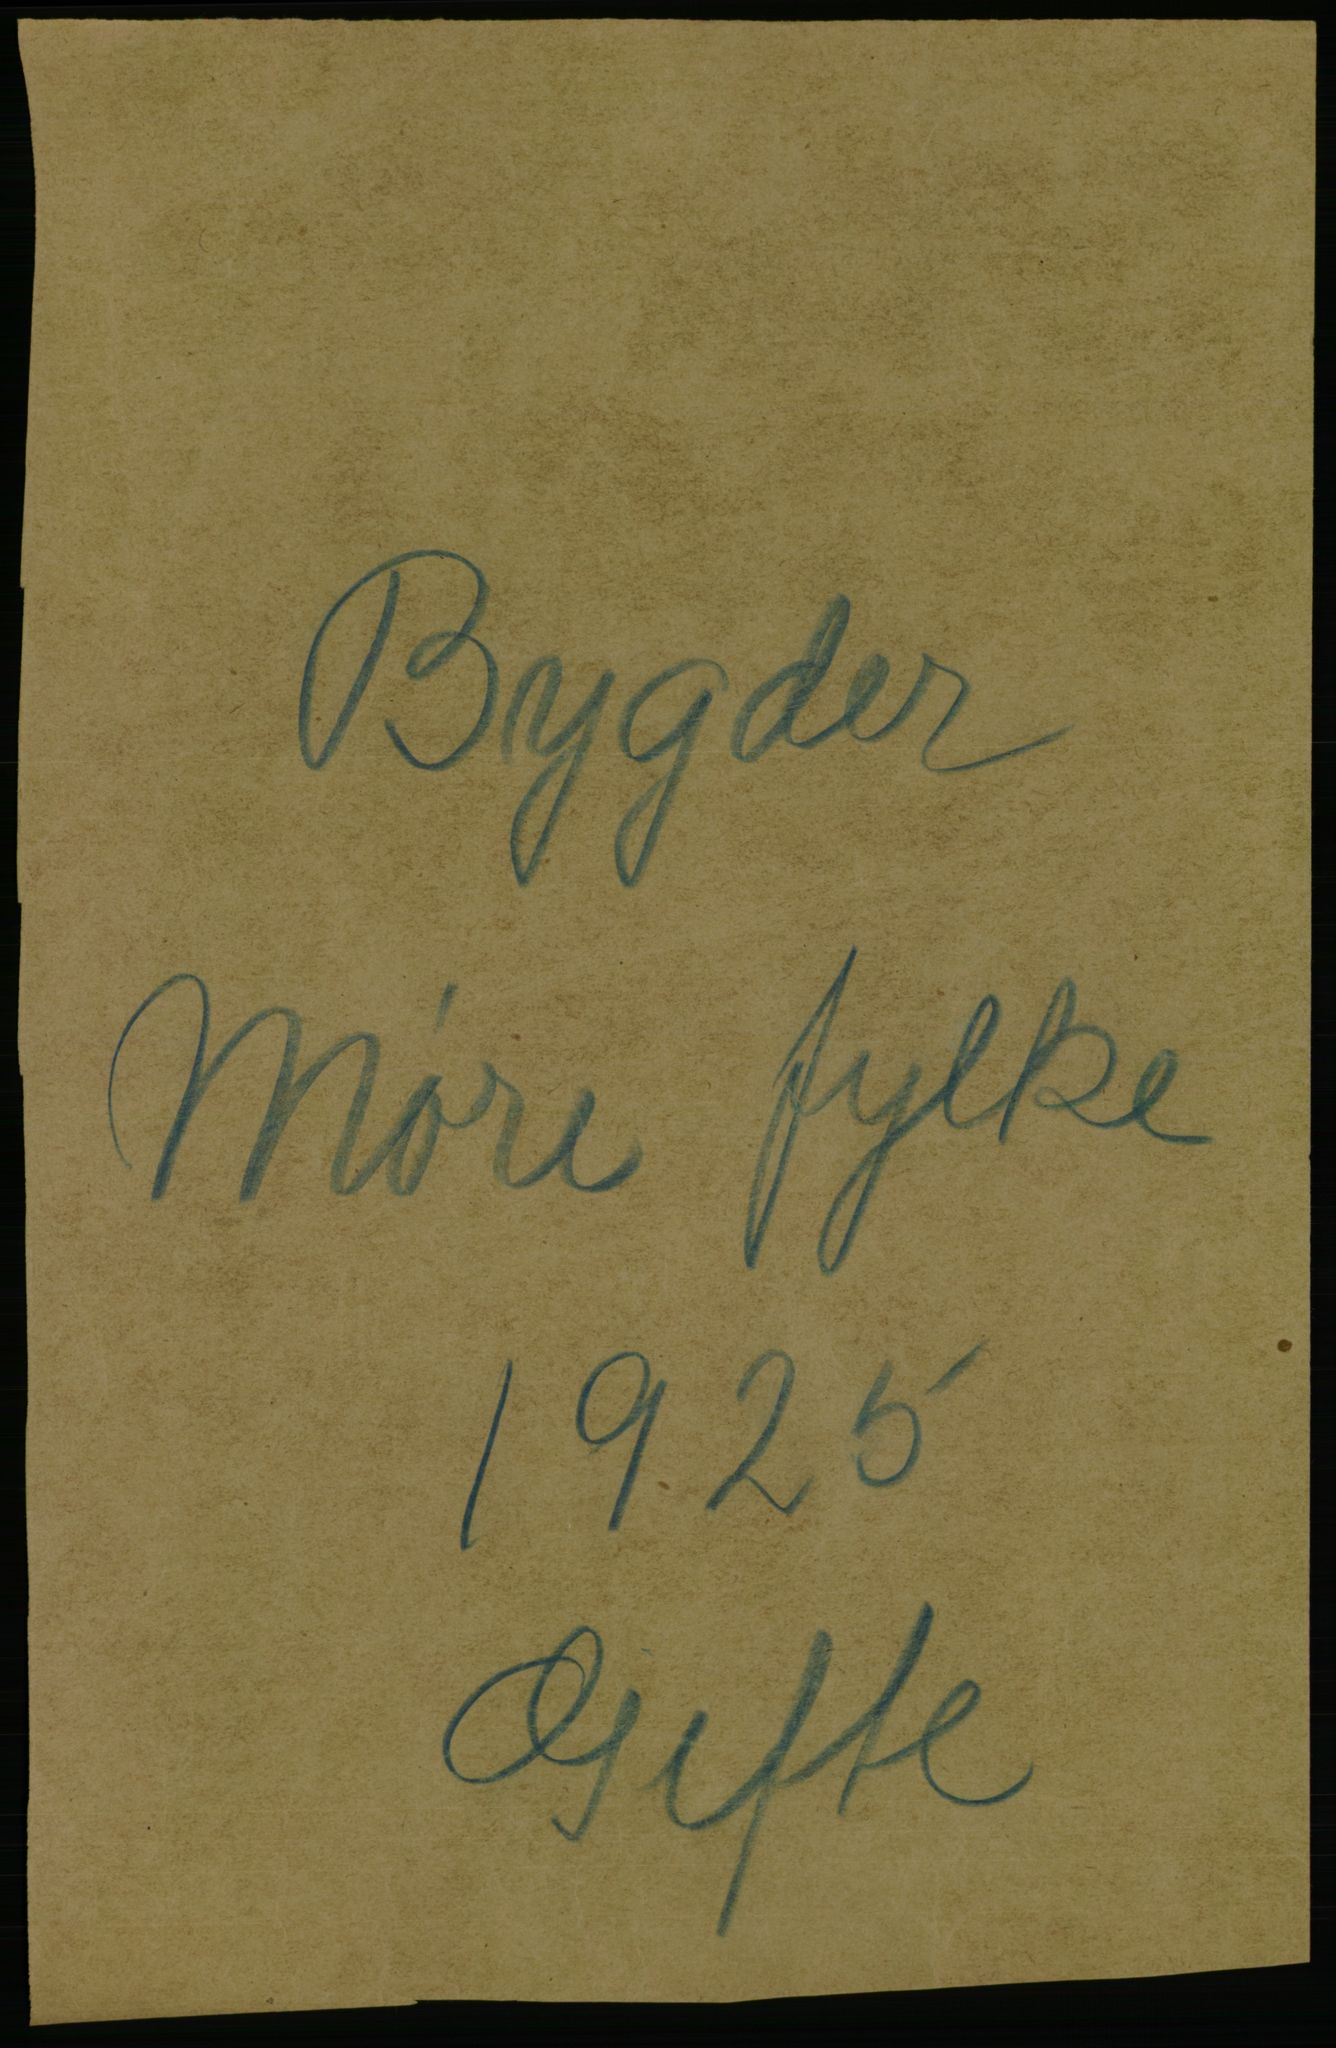 Bygder
Møre fylke
1925
Gifte